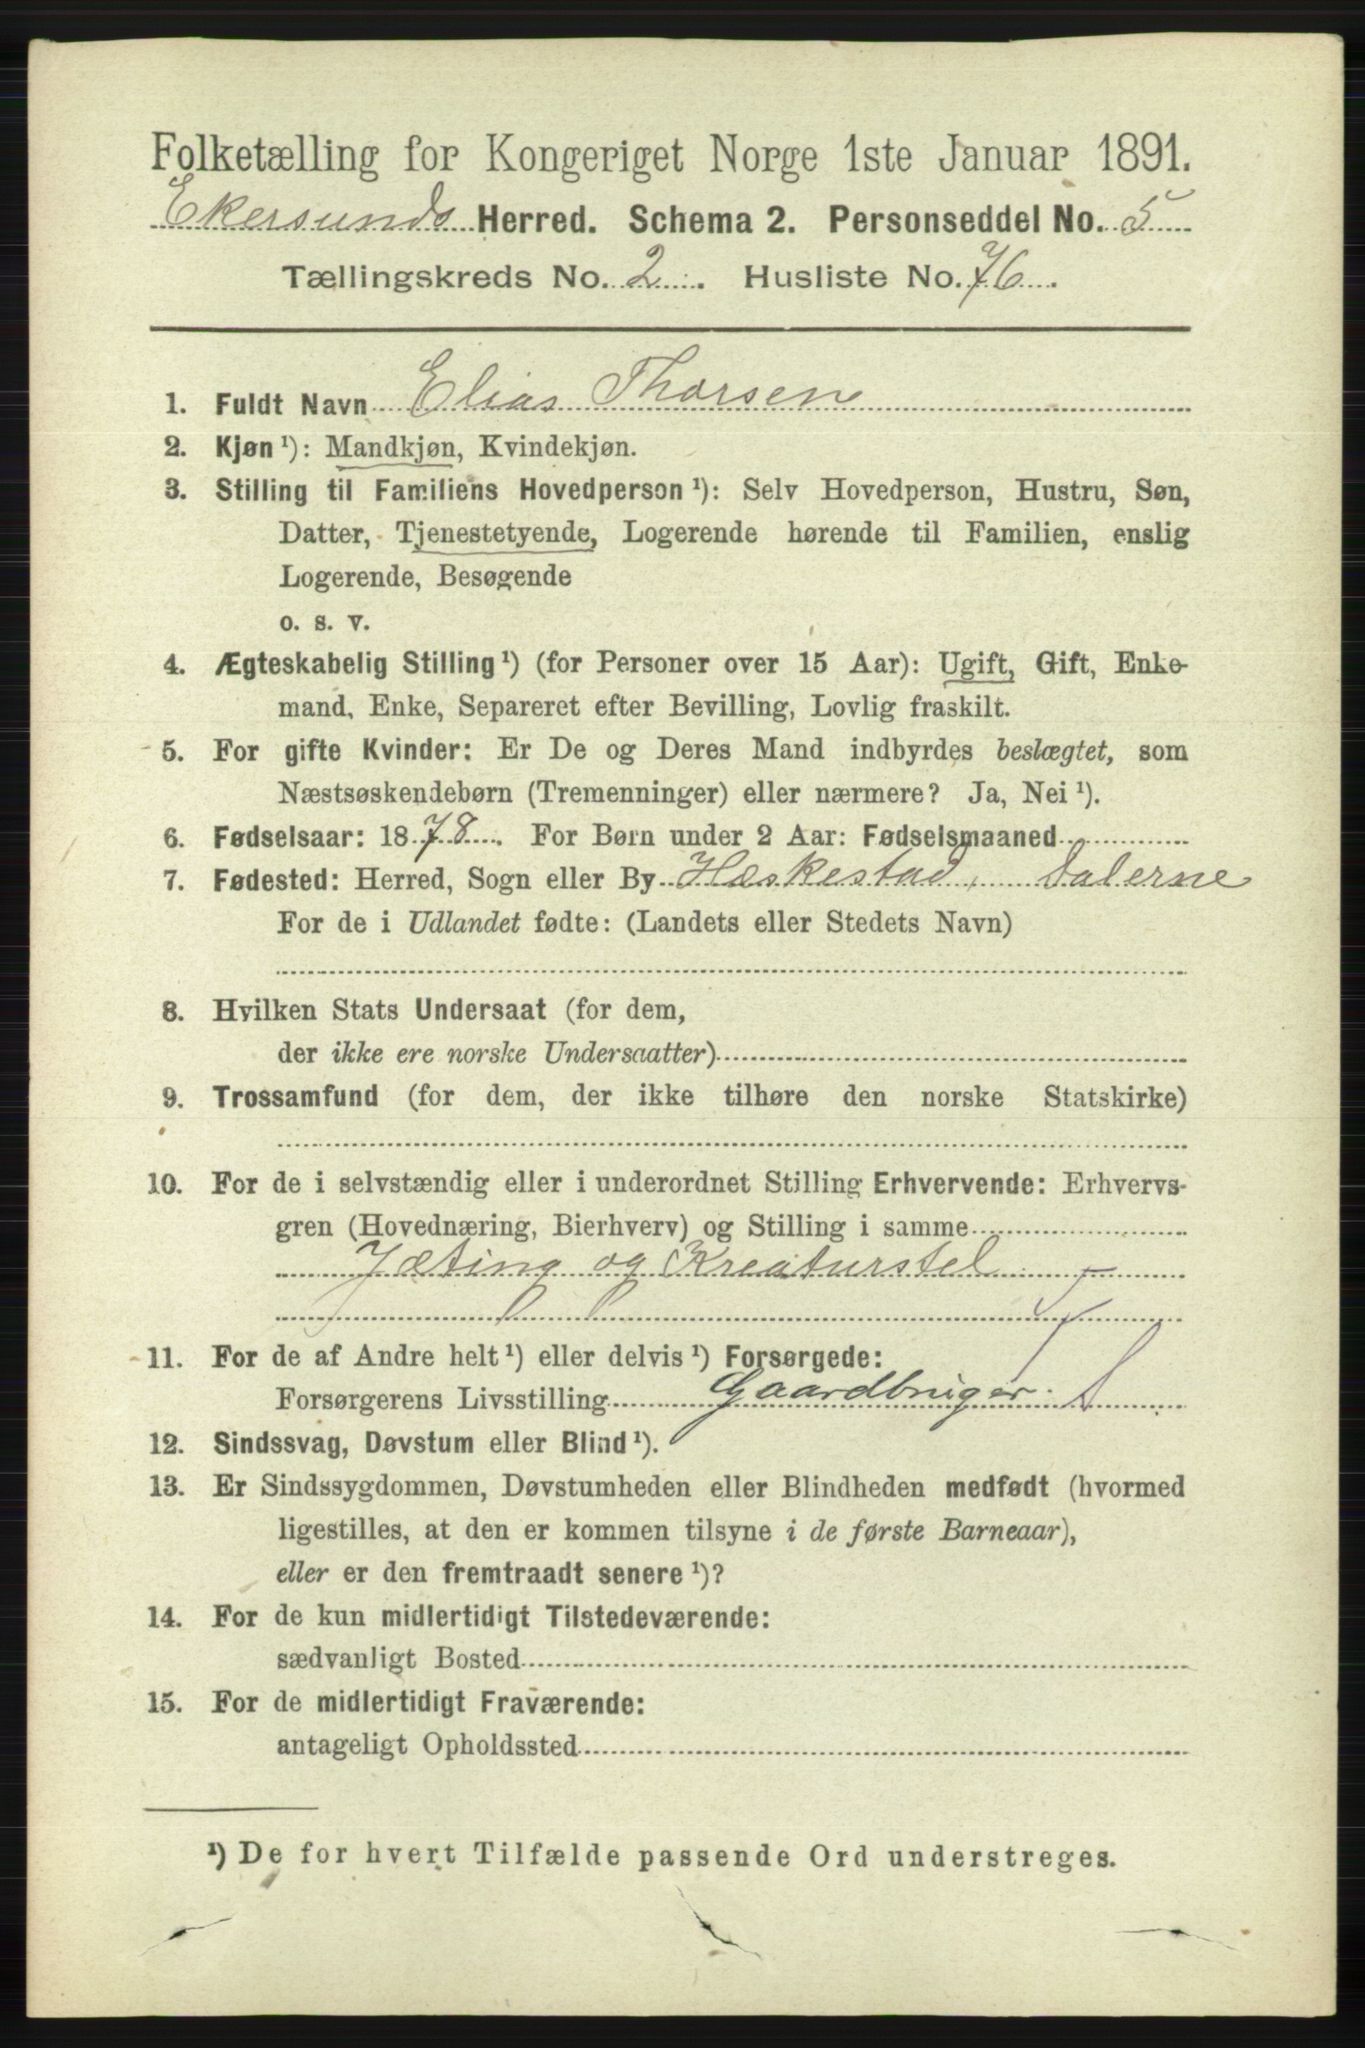 Folketælling for Kongeriget Norge 1ste Januar 1891.
Ekersunds Herred. Schema 2. Personseddel No. 5
Tællingskreds No. 2. Husliste No. 76.
1. Fuldt Navn Elias Thorsen
2. Kjøn ¹): Mandkjøn, Kvindekjøn.
3. Stilling til Familiens Hovedperson ¹): Selv Hovedperson, Hustru, Søn,
Datter, Tjenestetyende, Logerende hørende til Familien, enslig
Logerende, Besøgende
o. s. v.
4. Ægteskabelig Stilling ¹) (for Personer over 15 Aar): Ugift, Gift, Enke-
mand, Enke, Separeret efter Bevilling, Lovlig fraskilt.
5. For gifte Kvinder: Er De og Deres Mand indbyrdes beslægtet, som
Næstsøskendebørn (Tremenninger) eller nærmere? Ja, Nei ¹).
6. Fødselsaar: 1878. For Børn under 2 Aar: Fødselsmaaned
7. Fødested: Herred, Sogn eller By Hæskestad, Dalerne
For de i Udlandet fødte: (Landets eller Stedets Navn)
8. Hvilken Stats Undersaat (for dem,
der ikke ere norske Undersaatter)
9. Trossamfund (for dem, der ikke tilhøre den norske Statskirke)
10. For de i selvstændig eller i underordnet Stilling Erhvervende: Erhvervs-
gren (Hovednæring, Bierhverv) og Stilling i samme
Jæting og Kreaturstel
11. For de af Andre helt ¹) eller delvis ¹) Forsørgede:
Forsørgerens Livsstilling Gaardbruger.
12. Sindssvag, Døvstum eller Blind ¹).
13. Er Sindssygdommen, Døvstumheden eller Blindheden medfødt (hvormed
ligestilles, at den er kommen tilsyne i de første Barneaar),
eller er den fremtraadt senere ¹)?
14. For de kun midlertidigt Tilstedeværende:
sædvanligt Bosted
15. For de midlertidigt Fraværende:
antageligt Opholdssted
¹) De for hvert Tilfælde passende Ord understreges.